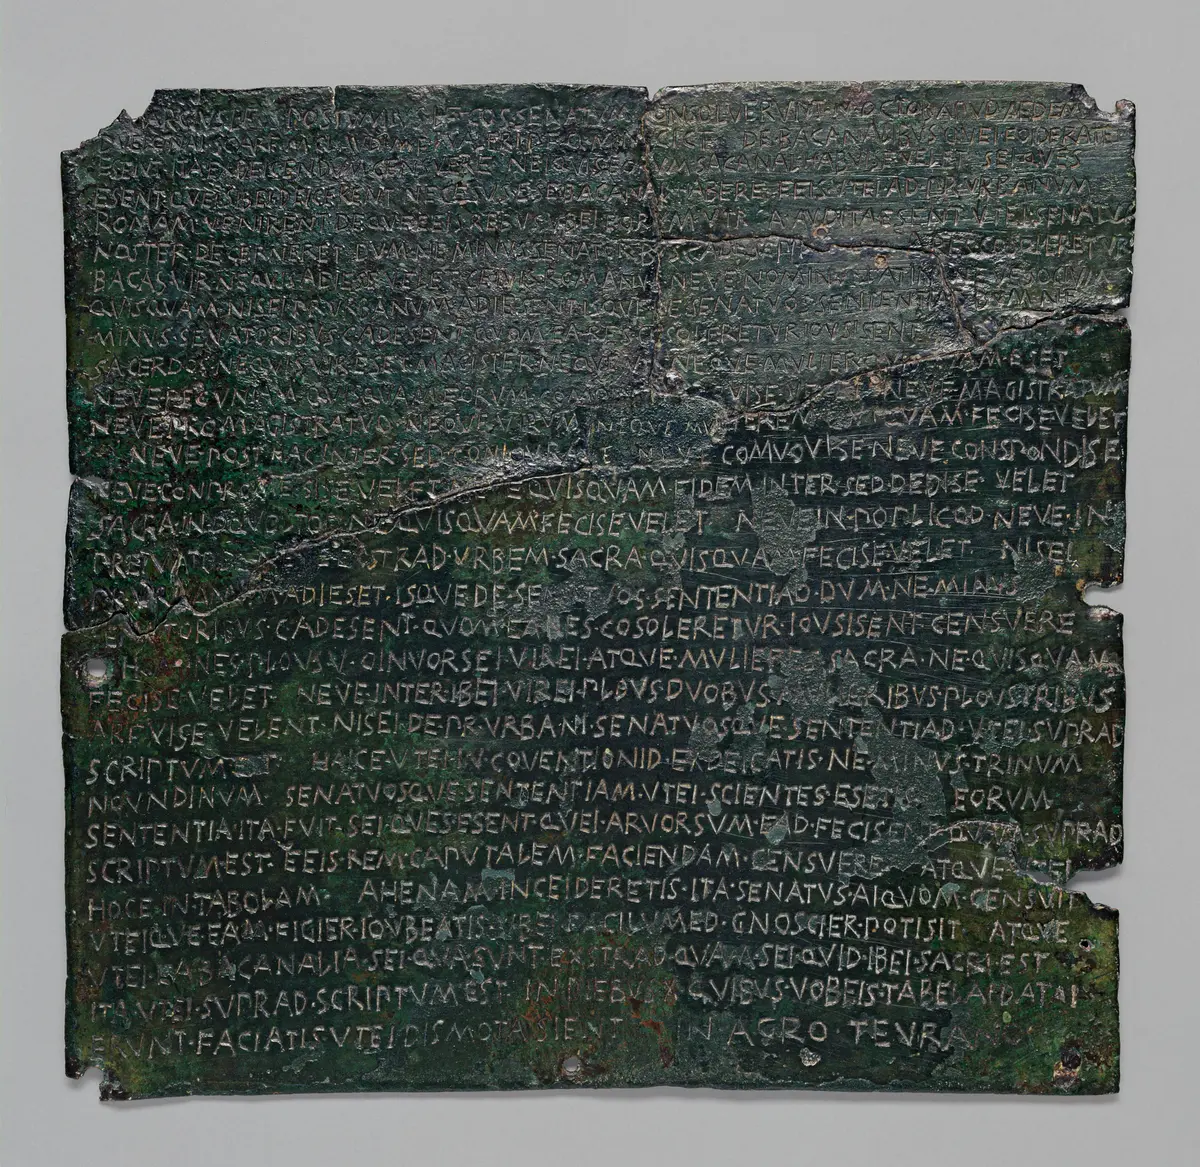 MARCIVS·L·F·S·POSTVMIVS·L·F·COS·SENATVM·CONSOLVERVNT·N·OCTOB·APVD·AEDEM
DVELONAI·SC·ARF·M·CLAVDI·M·F·L·VALERI·P·F·Q·MINVCI·C·F·DE·BACANALIBVS·QVEI·FOIDERATEI
ESENT·ITA·EXDEICENDVM·CENSVERE·NEIQVIS·EORVM·BACANAL·HABVISE·VELET·SEI·QVES
ESENT·QVEI·SIBEI·DEICERENT·NECESVS·ESE·BACANAL·HABERE·EEIS·VTEI·AD·PR·VRBANVM
ROMAM·VENIRENT·DEQVE·EEIS·REBVS·VBEI·EORVM·VTR A·AVDITA·ESENT·VTEI·SENATVS
NOSTER·DECERNERET·DVM·NE·MINVS·SENATORBVS·C·ADESENT RES·COSOLERETVR
BACAS·VIR·NEQVIS·ADIESE·VELET·CEIVIS·ROMANVS·NEVE·NOMINVS·LATINI NEVE SOCIVM
QVISQVAM·NISEI·PR·VRBANVM·ADIESENT·ISQVE·DE·SENATVOS·SENTENTIAD·DVM·NE
MINVS·SENATORIBVS·C·ADESENT·QVOM·EA·RES·COSOLERETVR·IOVSISENT·CE
SACERDOS·NEQVIS·VIR·ESET·MAGISTER·NEQVE·VIR·NEQVE·MVLIER·QVISQVAM·ESET
NEVE·PECVNIAM·QVISQVAM·EORVM·COMOINEM VISE·VELET NEVE·MAGISTRATVM
NEVE·PRO·MAGISTRATVO·NEQVE·VIRVM·NEQVE·MVLIEREM·QVIQVAM·FECISE·VELET
NEVE·POST·HAC·INTER·SED·CONIOVRASE NEVE·COMVOVISE·NEVE·CONSPONDISE
NEVE·CONPROMESISE·VELET·NEVE·QVISQVAM·FIDEM·INTER·SED·DEDISE·VELET
SACRA·IN·OQVOLTOD·NE·QVISQVAM·FECISE·VELET NEVE·IN·POPLICOD·NEVE·IN
PREIVATOD STRAD·VRBEM·SACRA·QVISQVAM·FECISE·VELET NISEI
PR·VRBANVM·ADIESET·ISQVE·DE·SENATVOS·SENTENTIAD·DVM·NE·MINVS
SENATORIBVS·C·ADESENT·QVOM·EA·RES·COSOLERETVR·IOVSISENT·CENSVERE
HOMINES·PLOVS·V·OINVORSEI·VIREI·ATQVE·MVLIERES SACRA·NE·QVISQVAM
FECISE·VELET NEVE·INTER·IBEI·VIREI·PLOVS·DVOBVS MVLIERIBVS·PLOVS·TRIBVS
ARFVISE·VELENT·NISEI·DE·PR·VRBANI·SENATVOSQVE·SENTENTIAD·VTEI·SVPRAD
SCRIPTVM EST HAICE·VTEI·IN·COVENTIONID·EXDEICATIS·NE·MINVS·TRINVM
NOVNDINVM SENATVOSQVE·SENTENTIAM·VTEI·SCIENTES·ESETIS EORVM
SENTENTIA·ITA·FVIT·SEI·QVES·ESENT·QVEI·ARVORSVM·EAD·FECISENT·QVAM·SVPRAD
SCRIPTVM·EST·EEIS·REM·CAPVTALEM·FACIENDAM·CENSVERE ATQVE·VTEI
HOCE·IN·TABOLAM AHENAM·INCEIDERETIS·ITA·SENATVS·AIQVOM·CENSVIT
VTEIQVE·EAM·FIGIER·IOVBEATIS·VBEI·FACILVMED·GNOSCIER·POTISIT ATQVE
VTEI·EA·BACANALIA·SEI·QVA·SVNT·EXSTRAD·QVAM·SEI·QVID·IBEI·SACRI·EST
ITA·VTEI·SVPRAD·SCRIPTVM·EST IN·DIEBVS·X·QVIBVS·VOBEIS·TABELAI·DATAI
ERVNT·FACIATIS·VTEI·DISMOTA·SIENT IN·AGRO·TEVRA